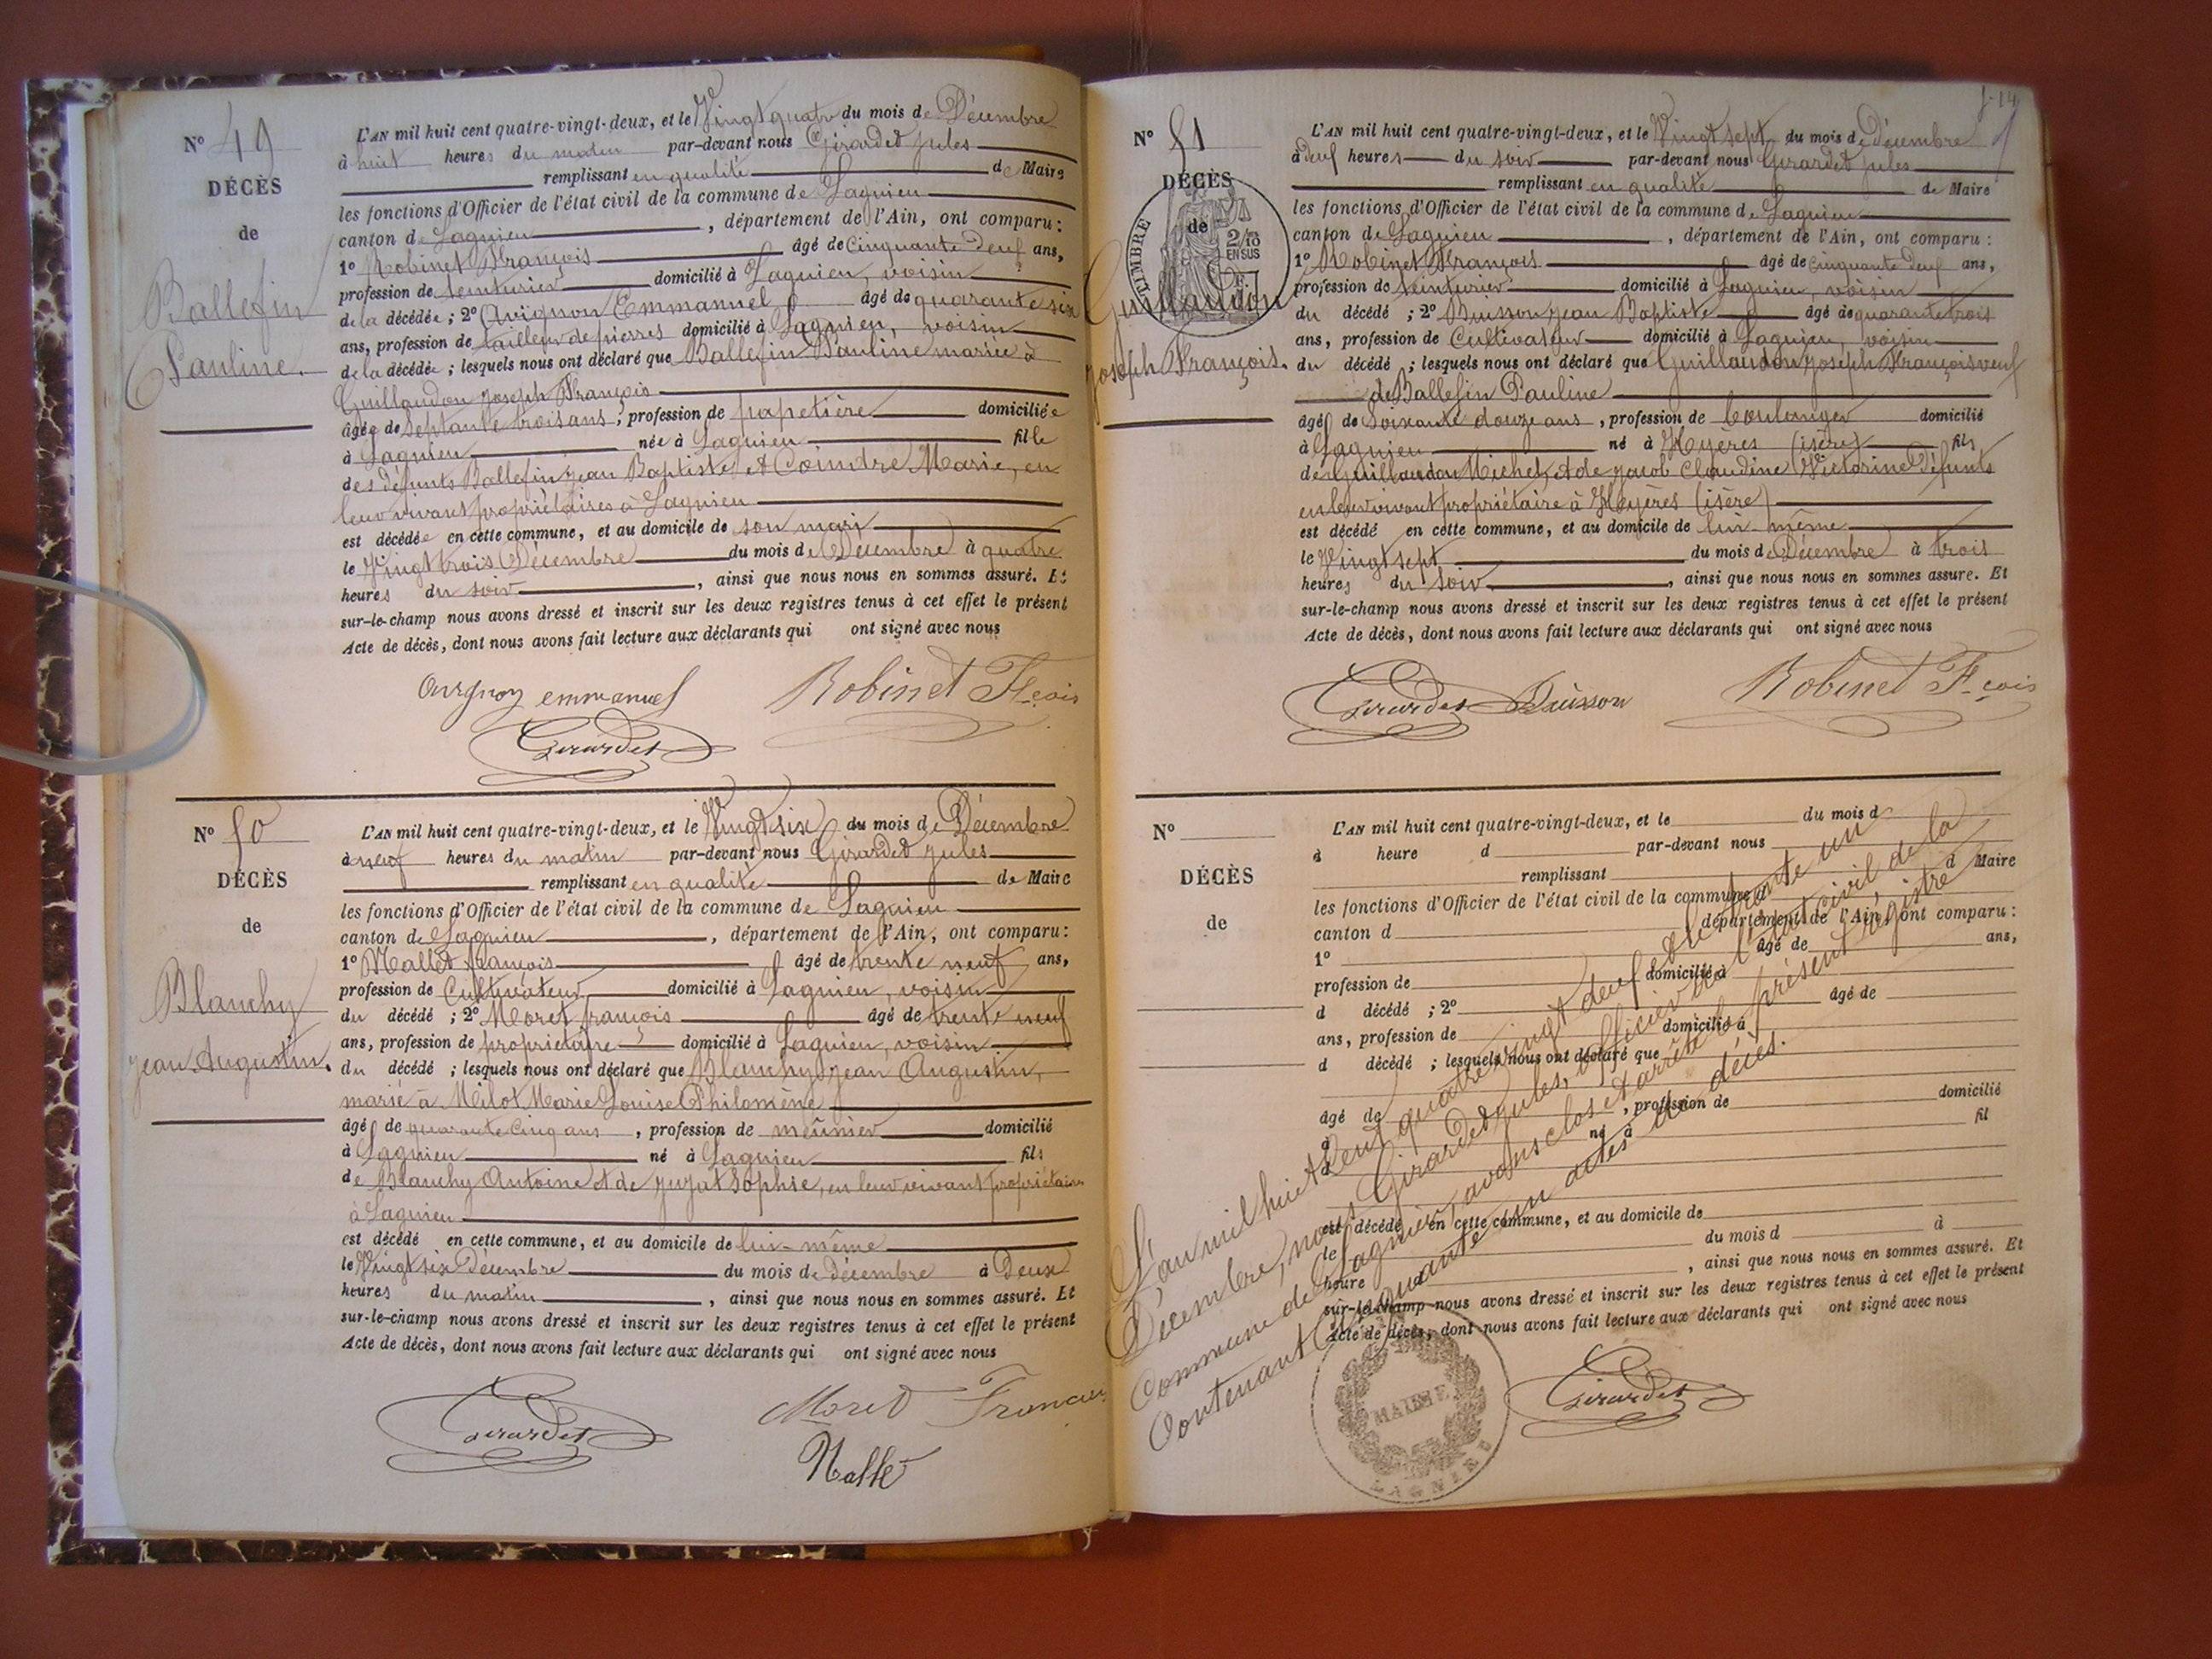 N° 49
DÉCÈS
de
Ballefin
Pauline.
L'AN mil huit cent quatre-vingt-deux, et le Vingt quatre du mois de Décembre
à huit heures du matin par-devant nous Girardet Jules
remplissant en qualité de Maire
les fonctions d'Officier de l'état civil de la commune de Lagnieu
canton de Lagnieu, département de l'Ain, ont comparu :
1° Robinet François âgé de Cinquante Deux ans,
profession de teinturier domicilié à Lagnieu, voisin
de la décédée ; 2° Avignon Emmanuel âgé de quarante six
ans, profession de tailleur de pierres domicilié à Lagnieu, voisin
de la décédée ; lesquels nous ont déclaré que Ballefin Pauline mariée à
Guillaudon Joseph François
âgée de Septante trois ans, profession de papetière domiciliée
à Lagnieu née à Lagnieu fille
des défunts Ballefin Jean Baptiste et Cointre Marie, en
leur vivant propriétaires à Lagnieu
est décédée en cette commune, et au domicile de son mari
le Vingt trois Décembre du mois de Décembre à quatre
heures du soir, ainsi que nous nous en sommes assuré. Et
sur-le-champ nous avons dressé et inscrit sur les deux registres tenus à cet effet le présent
Acte de décès, dont nous avons fait lecture aux déclarants qui ont signé avec nous
Avignon emmanuel Robinet Fçois
Girardet
N° 50
DÉCÈS
de
Blanchy
Jean Augustin.
L'AN mil huit cent quatre-vingt-deux, et le Vingt six du mois de Décembre
à neuf heures du matin par-devant nous Girardet Jules
remplissant en qualité de Maire
les fonctions d'Officier de l'état civil de la commune de Lagnieu
canton de Lagnieu, département de l'Ain, ont comparu :
1° Nallet françois âgé de trente neuf ans,
profession de Cultivateur domicilié à Lagnieu, voisin
du décédé ; 2° Moret françois âgé de trente neuf
ans, profession de propriétaire domicilié à Lagnieu, voisin
du décédé ; lesquels nous ont déclaré que Blanchy Jean Augustin,
marié à Milot Marie Louise Philomène
âgé de quarante cinq ans, profession de meûnier domicilié
à Lagnieu né à Lagnieu fils
de Blanchy Antoine et de Juzat Sophie, en leur vivant propriétaires
à Lagnieu
est décédé en cette commune, et au domicile de lui-même
le Vingt six Décembre du mois de décembre à Deux
heures du matin, ainsi que nous nous en sommes assuré. Et
sur-le-champ nous avons dressé et inscrit sur les deux registres tenus à cet effet le présent
Acte de décès, dont nous avons fait lecture aux déclarants qui ont signé avec nous
Girardet Moret Francois
Nallet
N° 51
DÉCÈS
de
TIMBRE
2/10
EN SUS
Guillaudon
Joseph François.
L'AN mil huit cent quatre-vingt-deux, et le Vingt sept du mois de Décembre
à heures du soir par-devant nous Girardet Jules
remplissant en qualité de Maire
les fonctions d'Officier de l'état civil de la commune de Lagnieu
canton de Lagnieu, département de l'Ain, ont comparu :
1° Robinet François âgé de cinquante deux ans,
profession de teinturier domicilié à Lagnieu, voisin
du décédé ; 2° Buisson Jean Baptiste âgé de quarante trois
ans, profession de Cultivateur domicilié à Lagnieu, voisin
du décédé ; lesquels nous ont déclaré que Guillaudon Joseph François veuf
de Ballefin Pauline
âgé de Soixante douze ans, profession de boulanger domicilié
à Lagnieu né à Heyères (isère) fils
de Guillaudon Michel et de Jacob Claudine Victorine Défunts
en leur vivant propriétaire à Heyères (isère)
est décédé en cette commune, et au domicile de lui-même
le Vingt sept du mois de Décembre à trois
heures du soir, ainsi que nous nous en sommes assuré. Et
sur-le-champ nous avons dressé et inscrit sur les deux registres tenus à cet effet le présent
Acte de décès, dont nous avons fait lecture aux déclarants qui ont signé avec nous
Girardet Buisson Robinet Fçois
N°
DÉCÈS
de
L'AN mil huit cent quatre-vingt-deux, et le du mois d
à heure d par-devant nous
remplissant d Maire
les fonctions d'Officier de l'état civil de la commune d
canton d département de l'Ain, ont comparu :
1° âgé de ans,
profession de domicilié à
d décédé ; 2° âgé de
ans, profession de domicilié à
d décédé ; lesquels nous ont déclaré que
âgé de , profession de domicilié
à né à fil
d
est décédé en cette commune, et au domicile de
le du mois d à
heure d , ainsi que nous nous en sommes assuré. Et
sur-le-champ nous avons dressé et inscrit sur les deux registres tenus à cet effet le présent
Acte de décès, dont nous avons fait lecture aux déclarants qui ont signé avec nous
L'an mil huit Cent quatre vingt deux et le trente un
Décembre, nous Girardet Jules, officier de l'état civil de la
Commune de Lagnieu, avons clos et arrêté le présent registre
Contenant Cinquante un actes de décès.
Girardet
MAIRIE
LAGNIEU